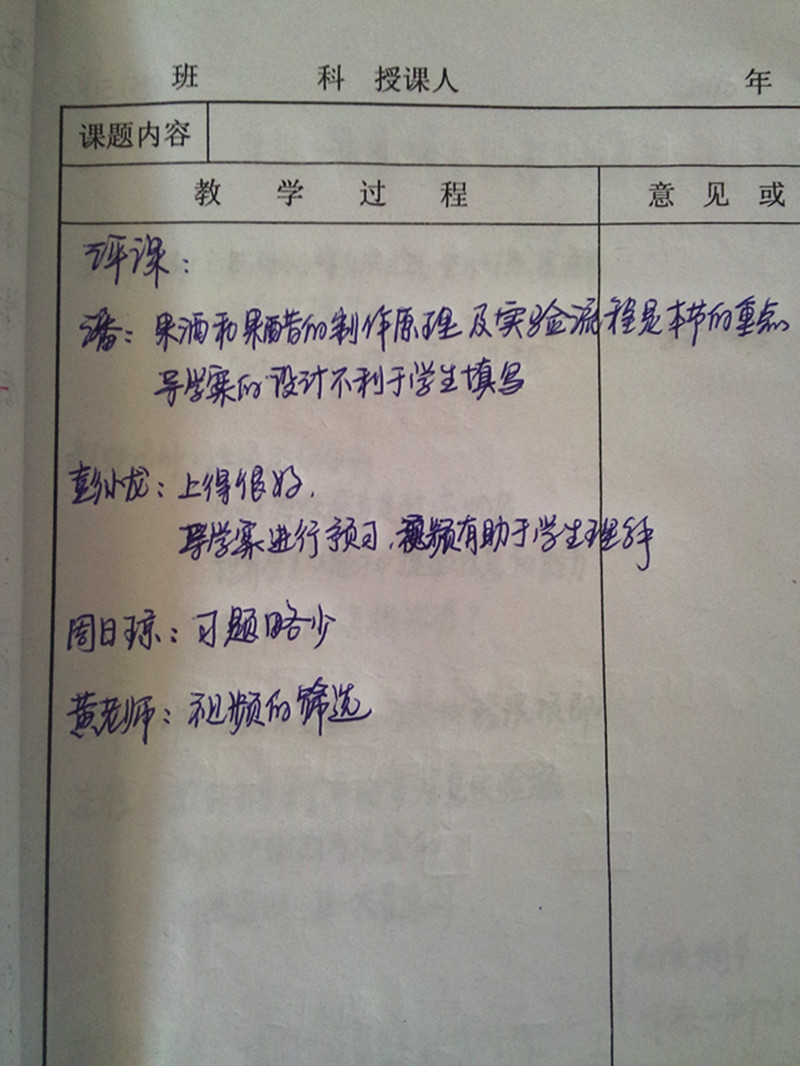 班 科 授课人 年
课题内容
教学过程 意见或
评课：
潘：果酒和果醋的制作原理及实验流程是本节的重点
导学案的设计不利于学生填写
彭小龙：上得很好.
导学案进行预习,视频有助于学生理解
周日琼：习题略少
黄老师：视频的筛选